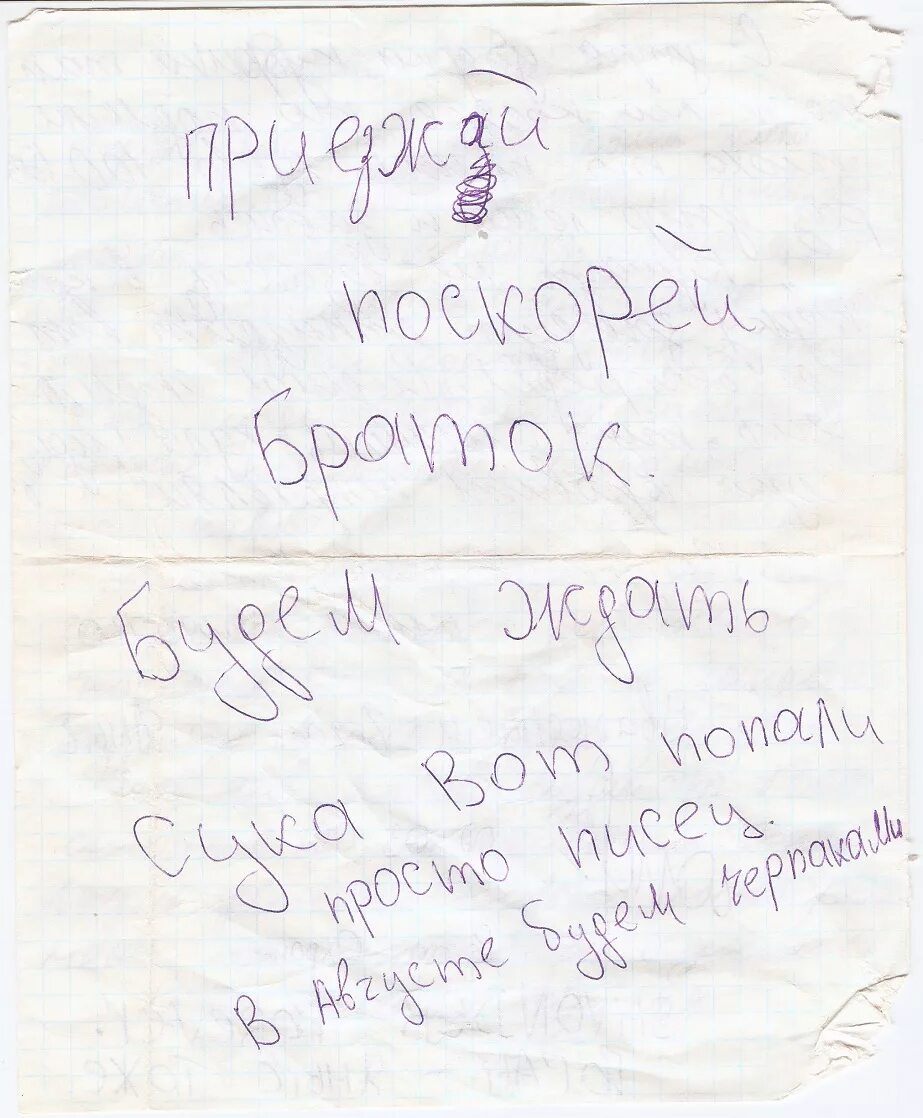 приеджай
поскорей
Браток.
Будем ждать
Сука Вот попали
просто писец.
В Августе будем черпаками